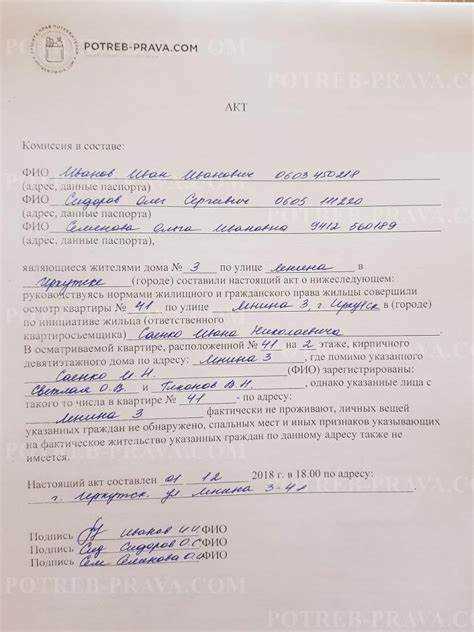 POTREB-PRAVA.COM
АКТ
Комиссия в составе:
ФИО Иванов Иван Иванович 0603 450218
(адрес, данные паспорта)
ФИО Сидоров Олег Сергеевич 0605 111220
(адрес, данные паспорта)
ФИО Семенова Ольга Ивановна 9412 560189
(адрес, данные паспорта),
являющиеся жителями дома № 3 по улице Ленина в
г. Иркутске (городе) составили настоящий акт о нижеследующем:
руководствуясь нормами жилищного и гражданского права жильцы совершили
осмотр квартиры № 41 по улице Ленина 3, г. Иркутск (в городе)
по инициативе жильца (ответственного
квартиросъемщика) Саенко Ивана Николаевича
В осматриваемой квартире, расположенной № 41 на 2 этаже, кирпичного
девятиэтажного дома по адресу: Ленина 3, где помимо указанного
Саенко И.Н. (ФИО) зарегистрированы:
О.В и В.Н., однако указанные лица с
такого то числа в квартире № 41 - по адресу:
Ленина 3 фактически не проживают, личных вещей
указанных граждан не обнаружено, спальных мест и иных признаков указывающих
на фактическое жительство указанных граждан по данному адресу также не
имеется.
Настоящий акт составлен 01 12 2018 г. в 18.00 по адресу:
г. Иркутск ул Ленина 3-41
Подпись Иванов И.И ФИО
Подпись Сид Сидоров О.С ФИО
Подпись Сем ФИО